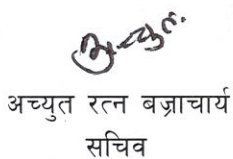 अच्युत रत्न बज्राचार्य
सचिव